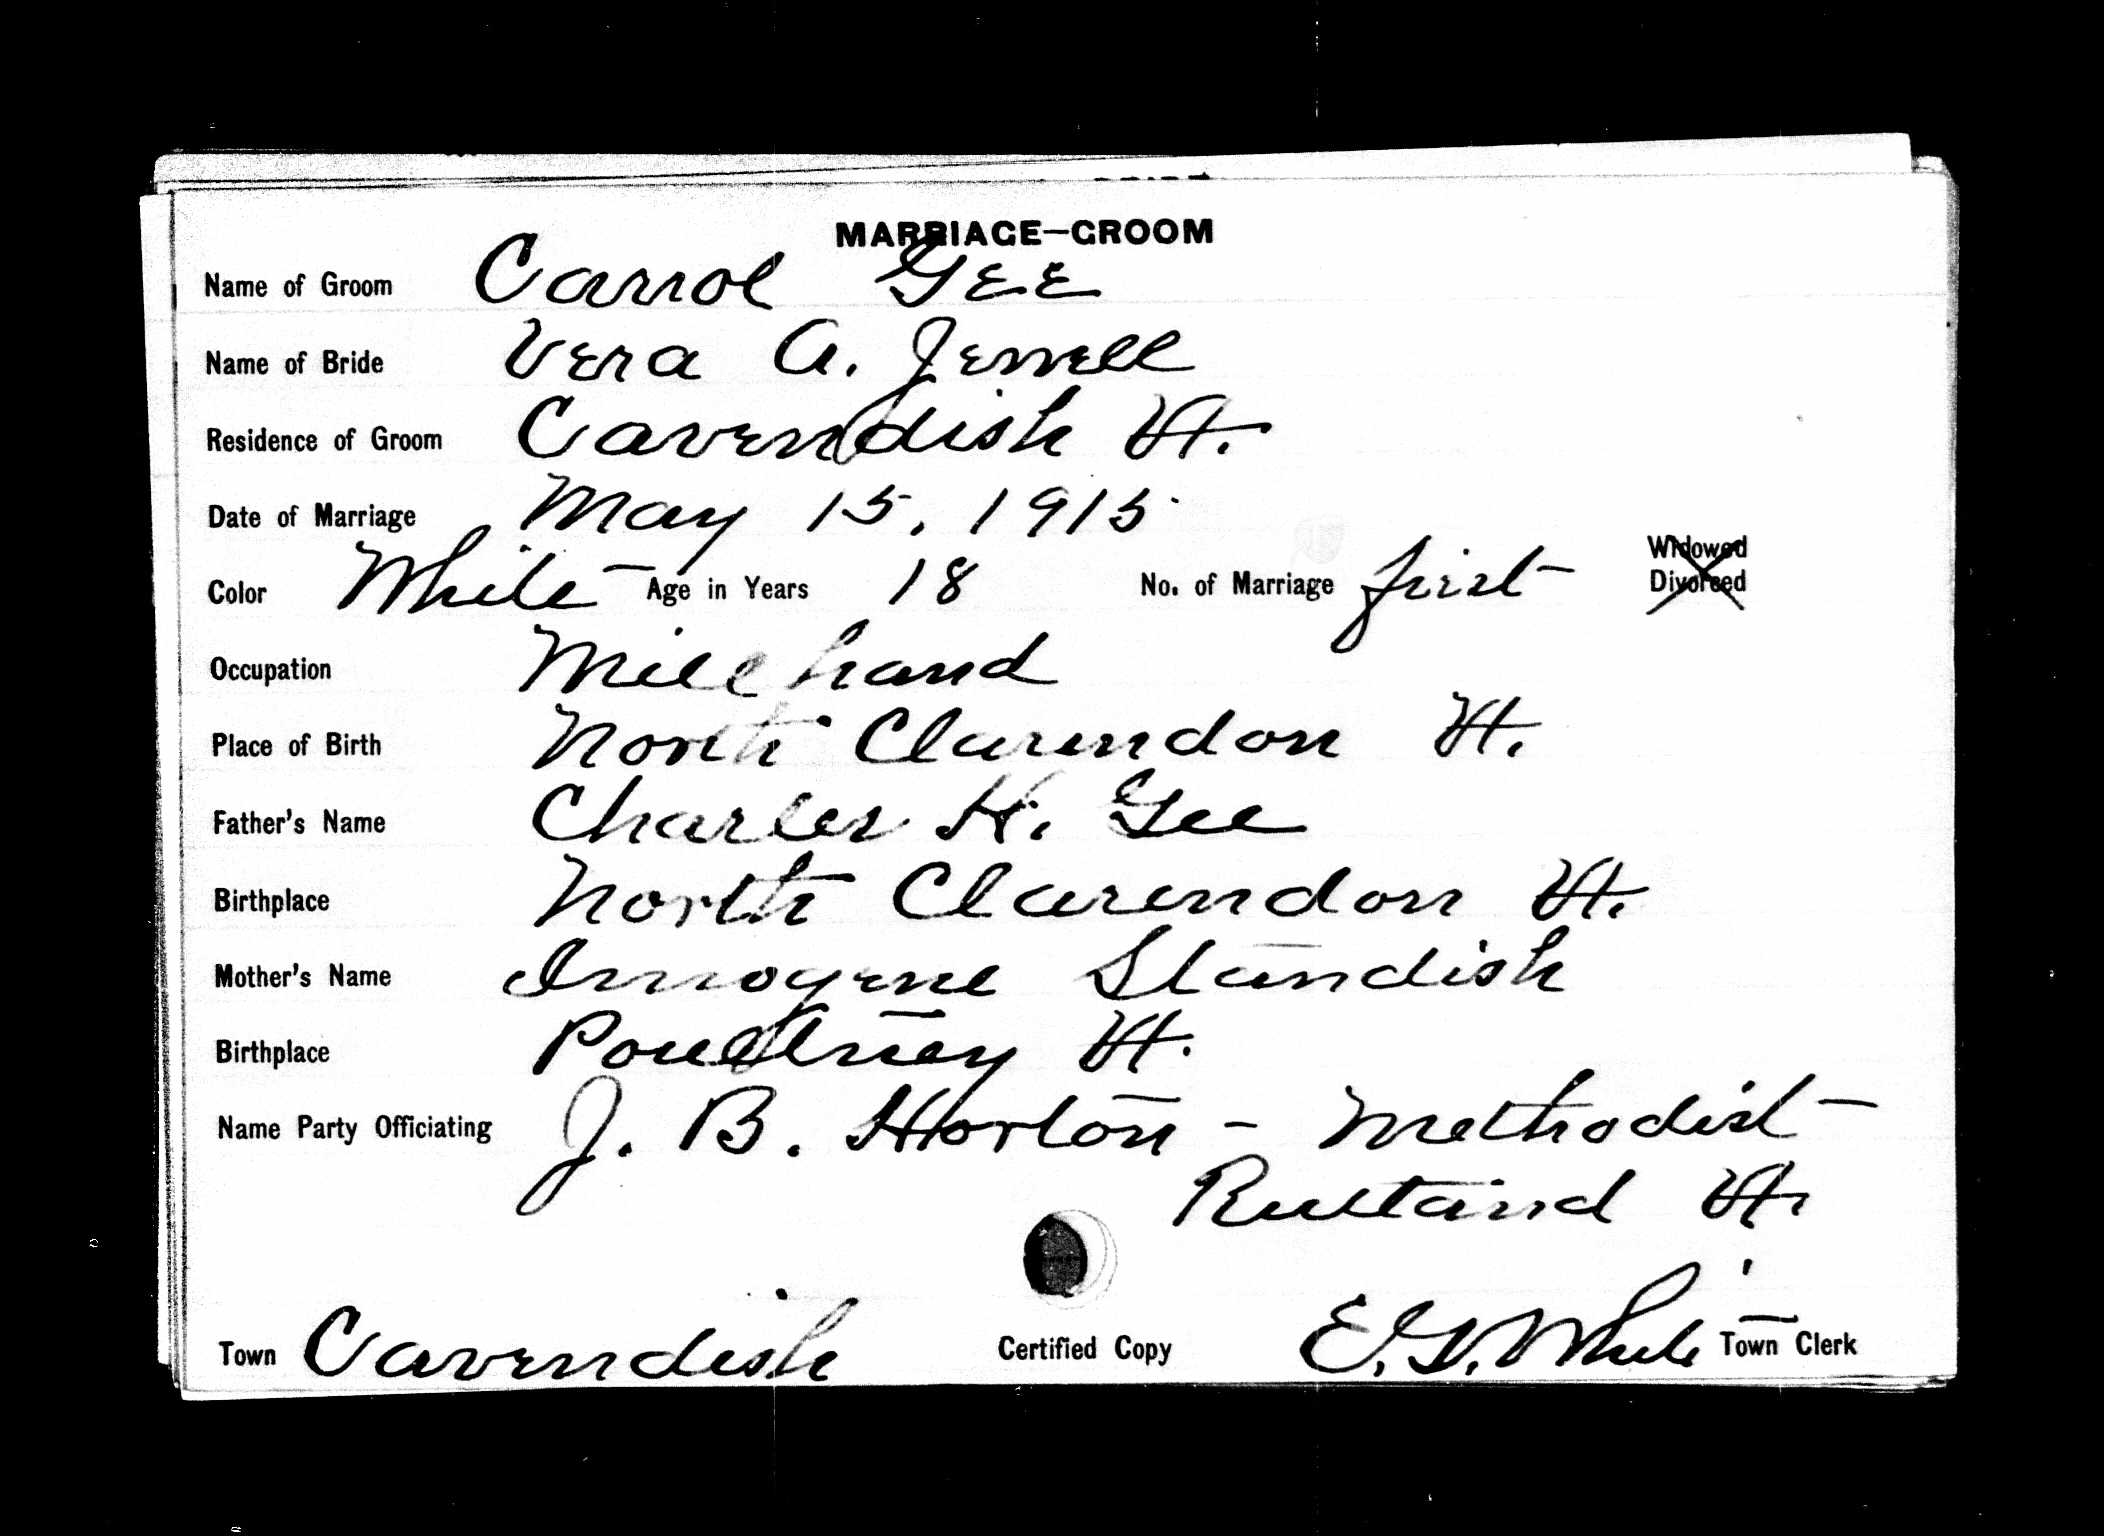 MARRIAGE—GROOM
Name of Groom Carrol Gee
Name of Bride Vera A. Jewell
Residence of Groom Cavendish Vt.
Date of Marriage May 15, 1915
Color White Age in Years 18 No. of Marriage first Widowed
Divorced
Occupation Mill hand
Place of Birth North Clarendon Vt.
Father's Name Charles H. Gee
Birthplace North Clarendon Vt.
Mother's Name Imogene Standish
Birthplace Poultney Vt.
Name Party Officiating J. B. Horton - Methodist
Rutland Vt.
Town Cavendish Certified Copy E. G. White Town Clerk